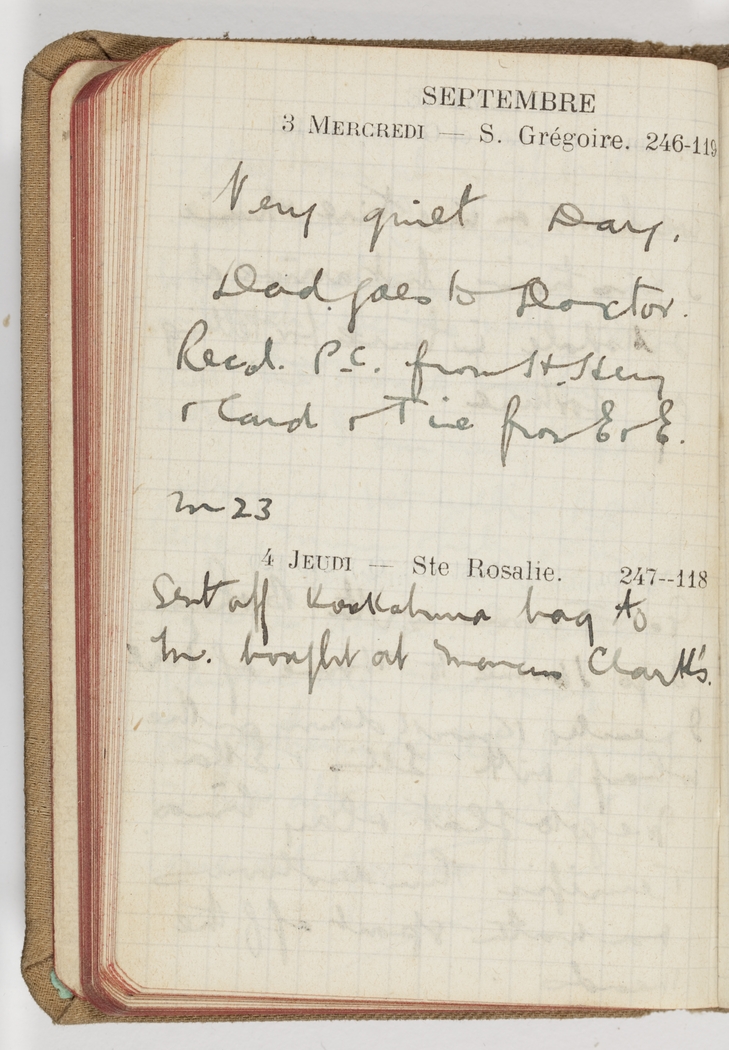 SEPTEMBRE
3 MERCREDI — S. Grégoire. 246-119
Very quiet Day.
Dad goes to Doctor.
Recd. P.C. from H. Hey
& Card & Tie from E & E.
M 23
4 JEUDI — Ste Rosalie. 247--118
Sent off Kookaburra bag to
M. bought at Marcus Clark's.